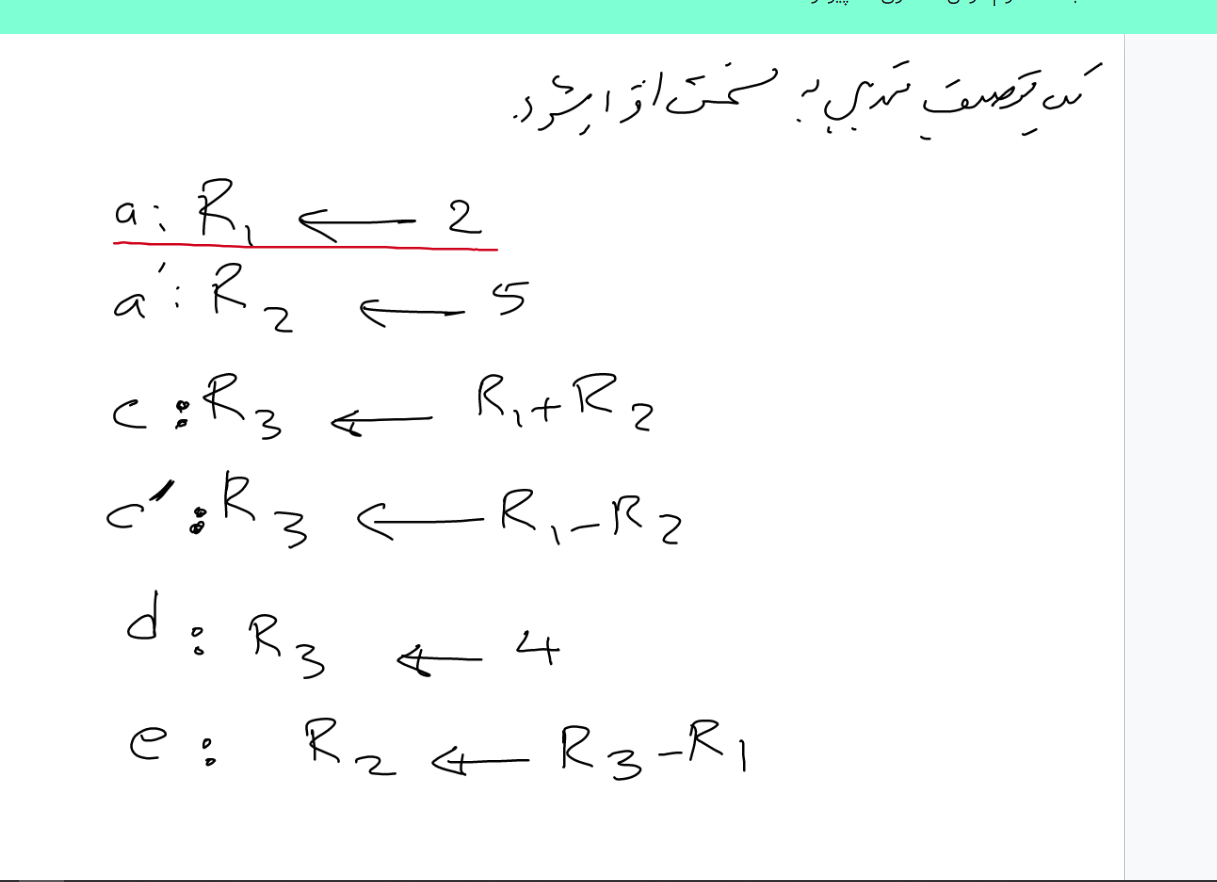 یک توصیف تبدیل به سخت افزار شود.
a: R1 ← 2
a': R2 ← 5
c: R3 ← R1+R2
c': R3 ← R1-R2
d: R3 ← 4
e: R2 ← R3-R1